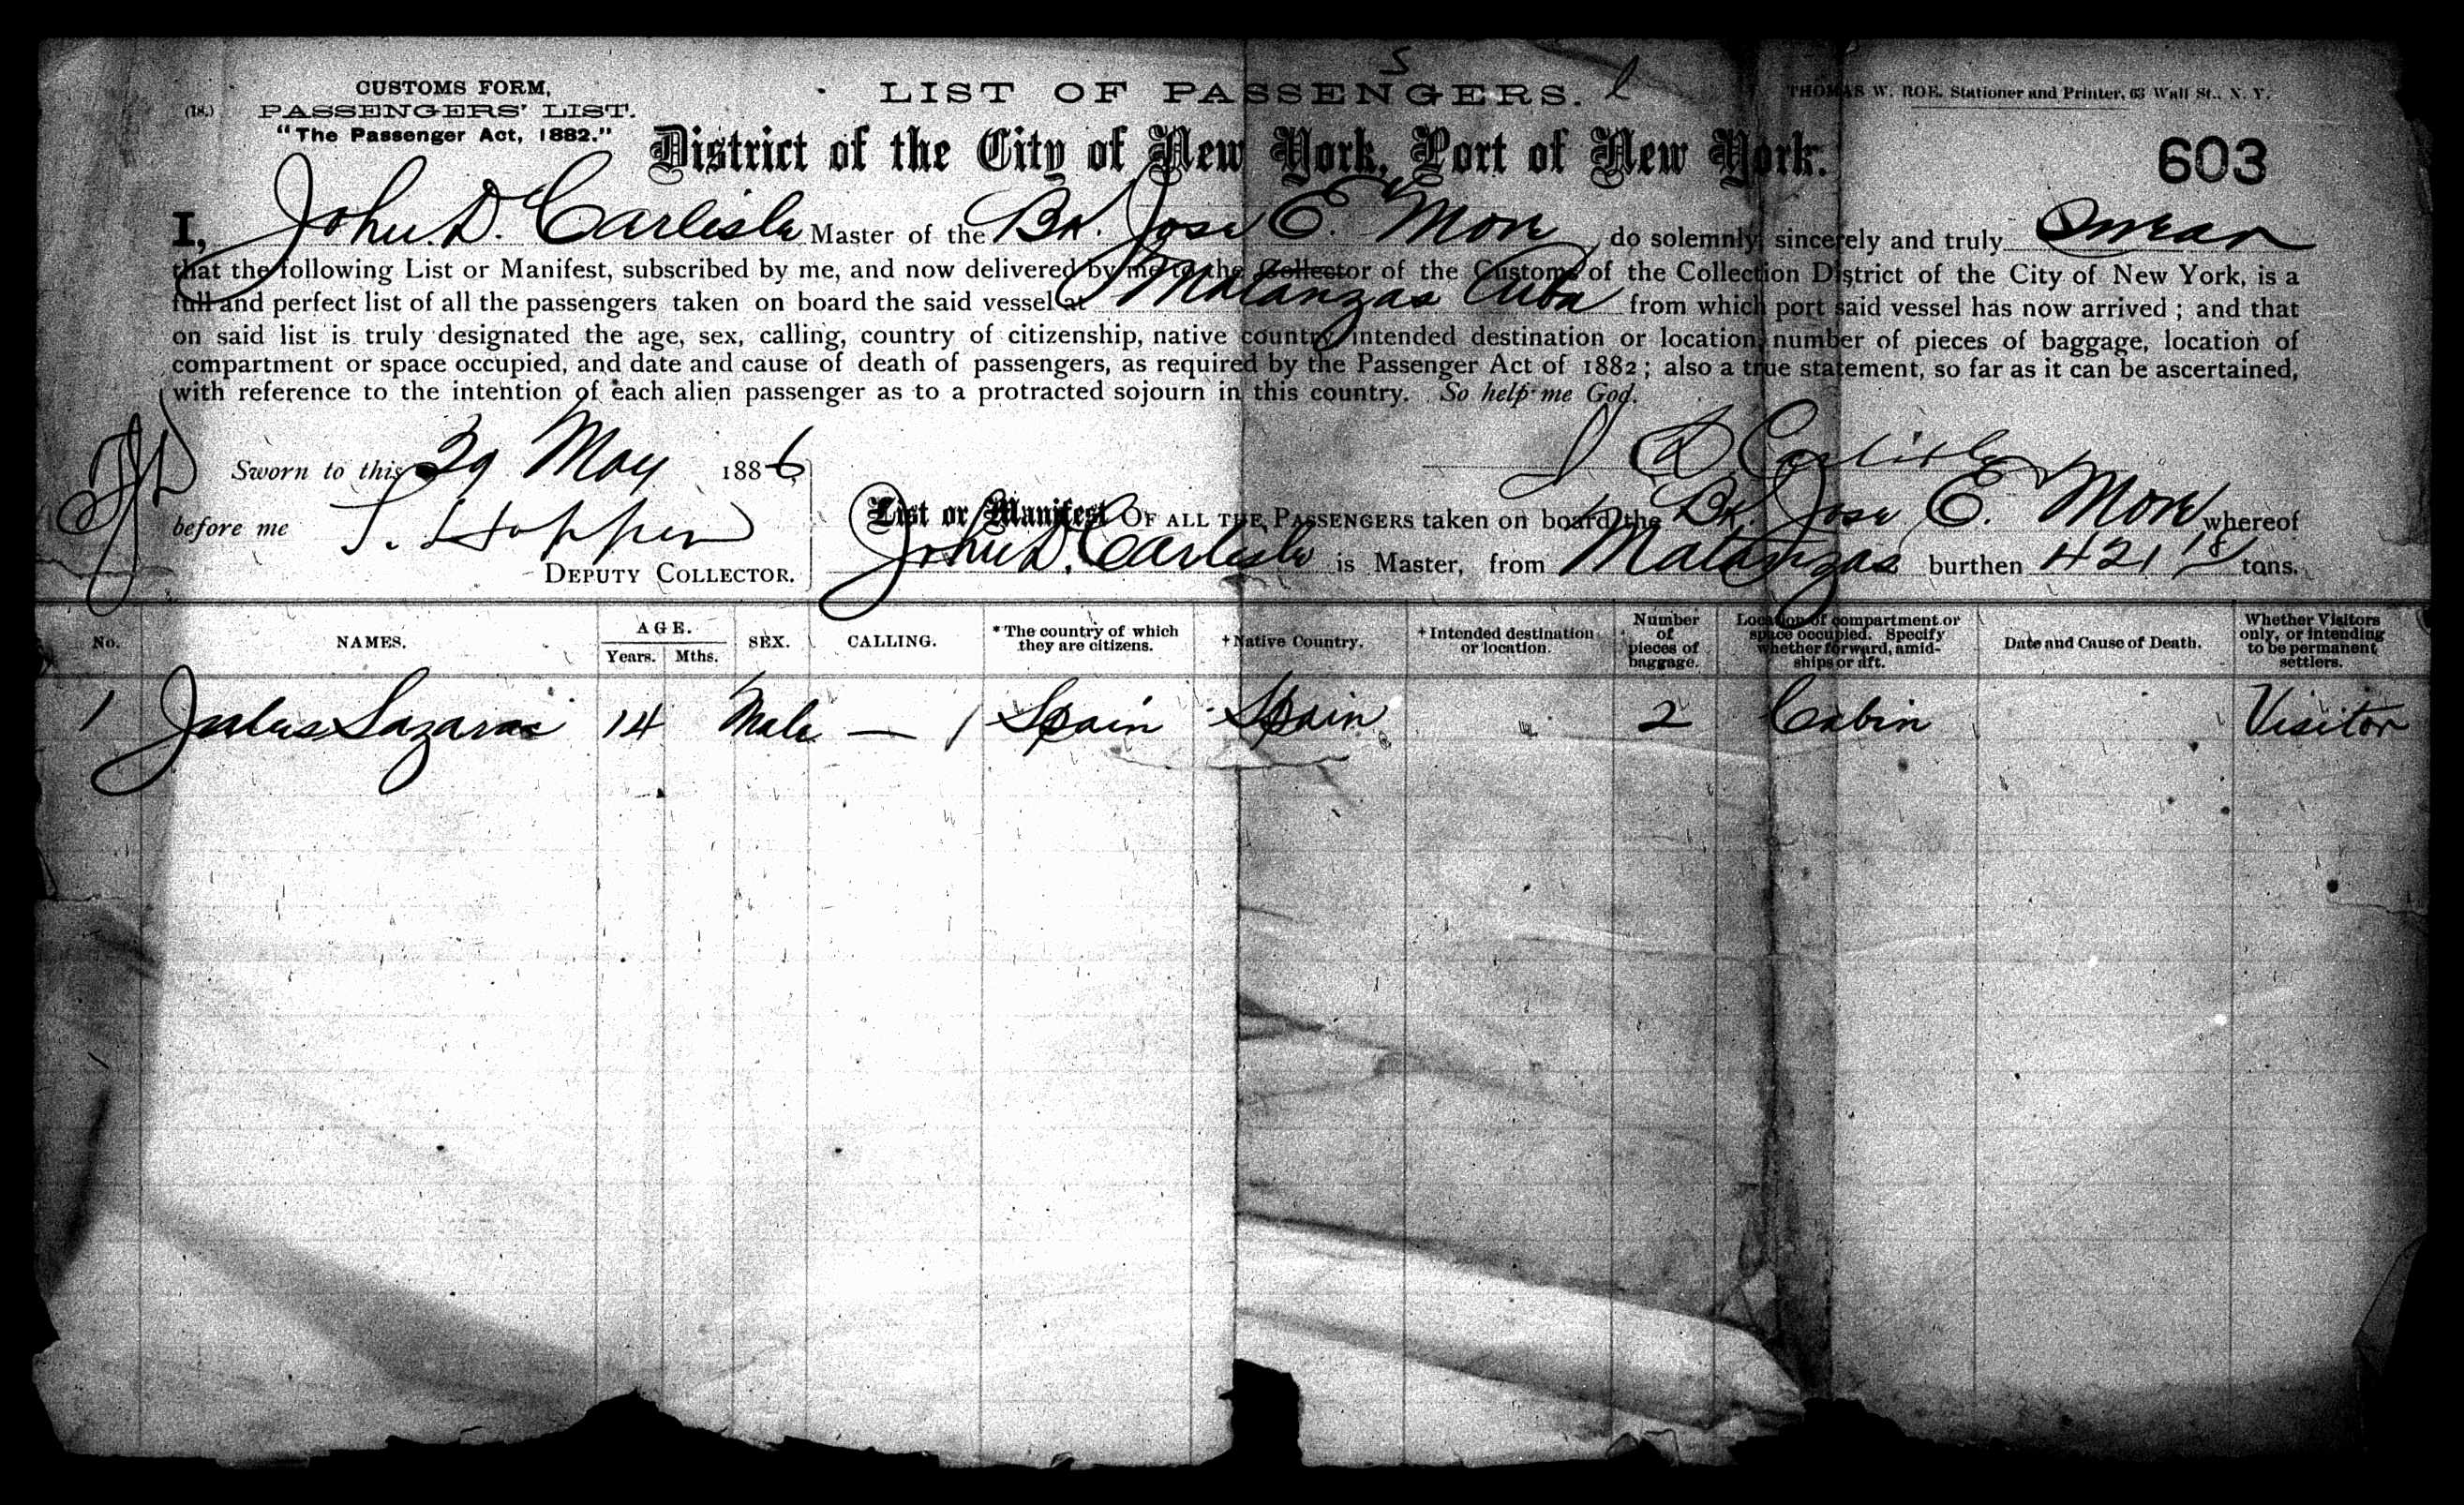 CUSTOMS FORM,
(18.) PASSENGERS' LIST.
"The Passenger Act, 1882."
LIST OF PASSENGERS.
THOMAS W. ROE. Stationer and Printer, 63 Wall St., N. Y.
District of the City of New York, Port of New York.
603
I, John D. Carlisle Master of the Bk. Jose E. More do solemnly, sincerely and truly Swear
that the following List or Manifest, subscribed by me, and now delivered by me to the Collector of the Customs of the Collection District of the City of New York, is a
full and perfect list of all the passengers taken on board the said vessel at Matanzas Cuba from which port said vessel has now arrived ; and that
on said list is truly designated the age, sex, calling, country of citizenship, native country intended destination or location, number of pieces of baggage, location of
compartment or space occupied, and date and cause of death of passengers, as required by the Passenger Act of 1882 ; also a true statement, so far as it can be ascertained,
with reference to the intention of each alien passenger as to a protracted sojourn in this country. So help me God.
J D Carlisle
Sworn to this 29 May 1886
before me T. Hopper
DEPUTY COLLECTOR.
List or Manifest OF ALL THE PASSENGERS taken on board the Bk. Jose E. More whereof
John D. Carlisle is Master, from Matanzas burthen 421 tons.
No. NAMES. AGE. Years. Mths. SEX. CALLING. * The country of which they are citizens. + Native Country. + Intended destination or location. Number of pieces of baggage. Location of compartment or space occupied. Specify whether forward, amidships or aft. Date and Cause of Death. Whether Visitors only, or intending to be permanent settlers.
1 Jules 14 Male — Spain Spain 2 Cabin Visitor